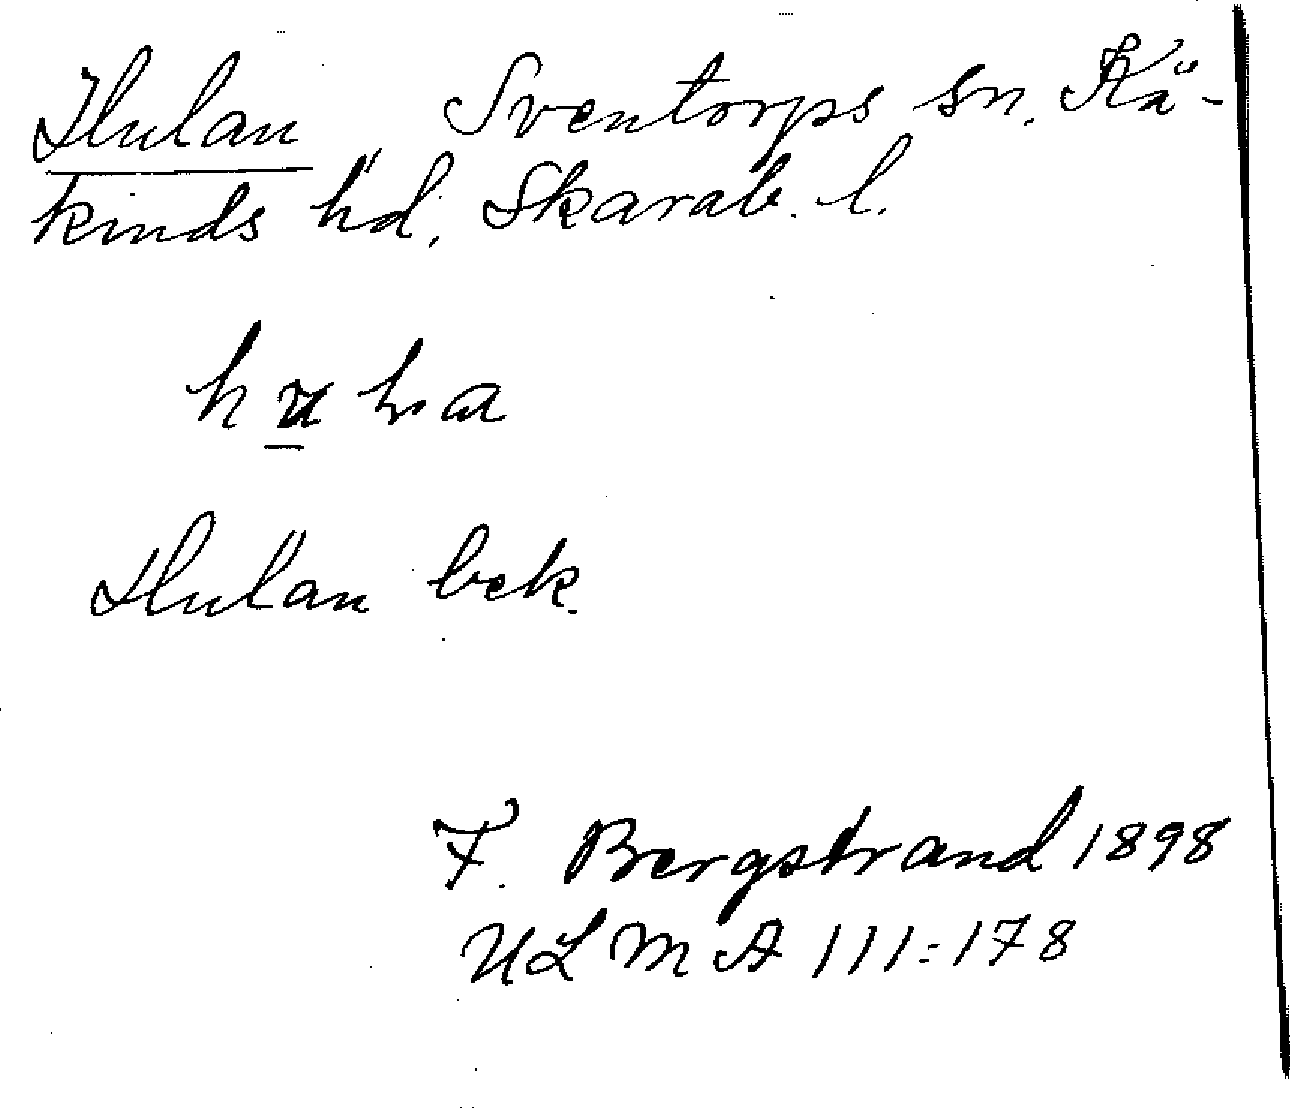 Hulan Sventorps sn. Kå-
kinds hd, Skarab. l.
Hulan bek.
F. Bergstrand 1898
ULMA 111:178